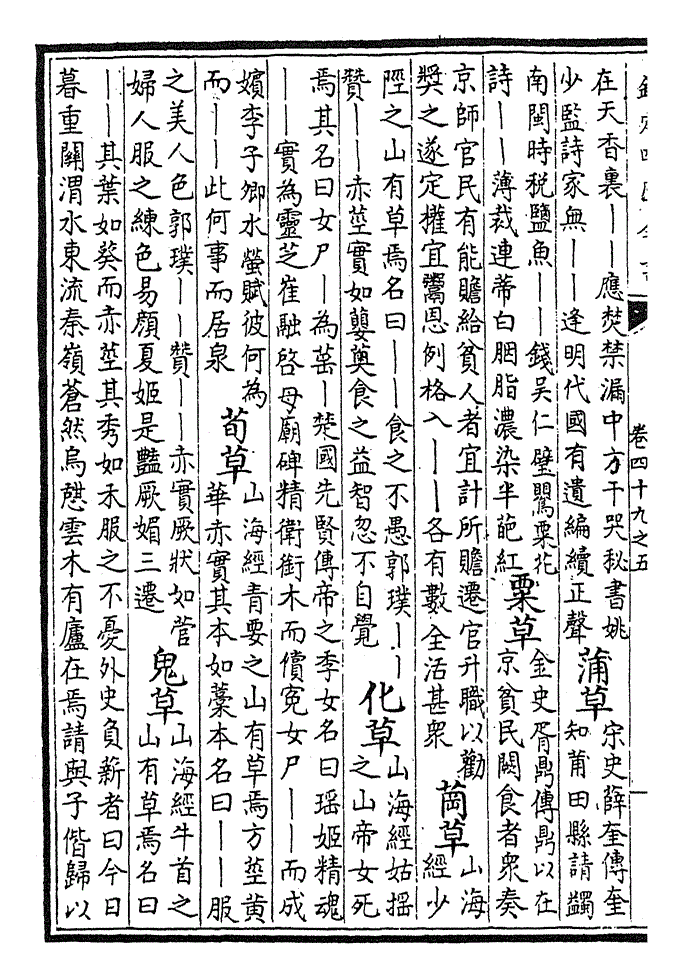 卷四十九之五
在天香裏――應焚禁漏中方干哭秘書姚
少監詩家無――逢明代國有遺編續正聲
蒲草
宋史薛奎傳奎
知莆田縣請蠲
南閩時税鹽魚――錢吴仁璧罌粟花
詩――薄裁連蒂白胭脂濃染半葩紅
粟草
金史胥鼎傳鼎以在
京貧民闕食者衆奏
京師官民有能贍給貧人者宜計所贍遷官升職以勸
奬之遂定權宜鬻恩例格入―――各有數全活甚衆
䓘草
山海
經少
陘之山有草焉名曰――食之不愚郭璞――
贊――赤莖實如蘡薁食之益智忽不自覺
化草
山海經姑揺
之山帝女死
焉其名曰女尸―為―楚國先賢傳帝之季女名曰瑶姬精魂
――實為靈芝崔融啓母廟碑精衛銜木而償寃女尸――而成
嬪李子卿水螢賦彼何為
而――此何事而居泉
荀草
山海經青要之山有草焉方莖黄
華赤實其本如藁本名曰――服
之美人色郭璞――贊――赤實厥狀如菅
婦人服之練色易顔夏姬是豔厥媚三遷
鬼草
山海經牛首之
山有草焉名曰
――其葉如葵而赤莖其秀如禾服之不憂外史負薪者曰今日
暮重關渭水東流秦嶺蒼然烏慇雲木有廬在焉請與子偕歸以